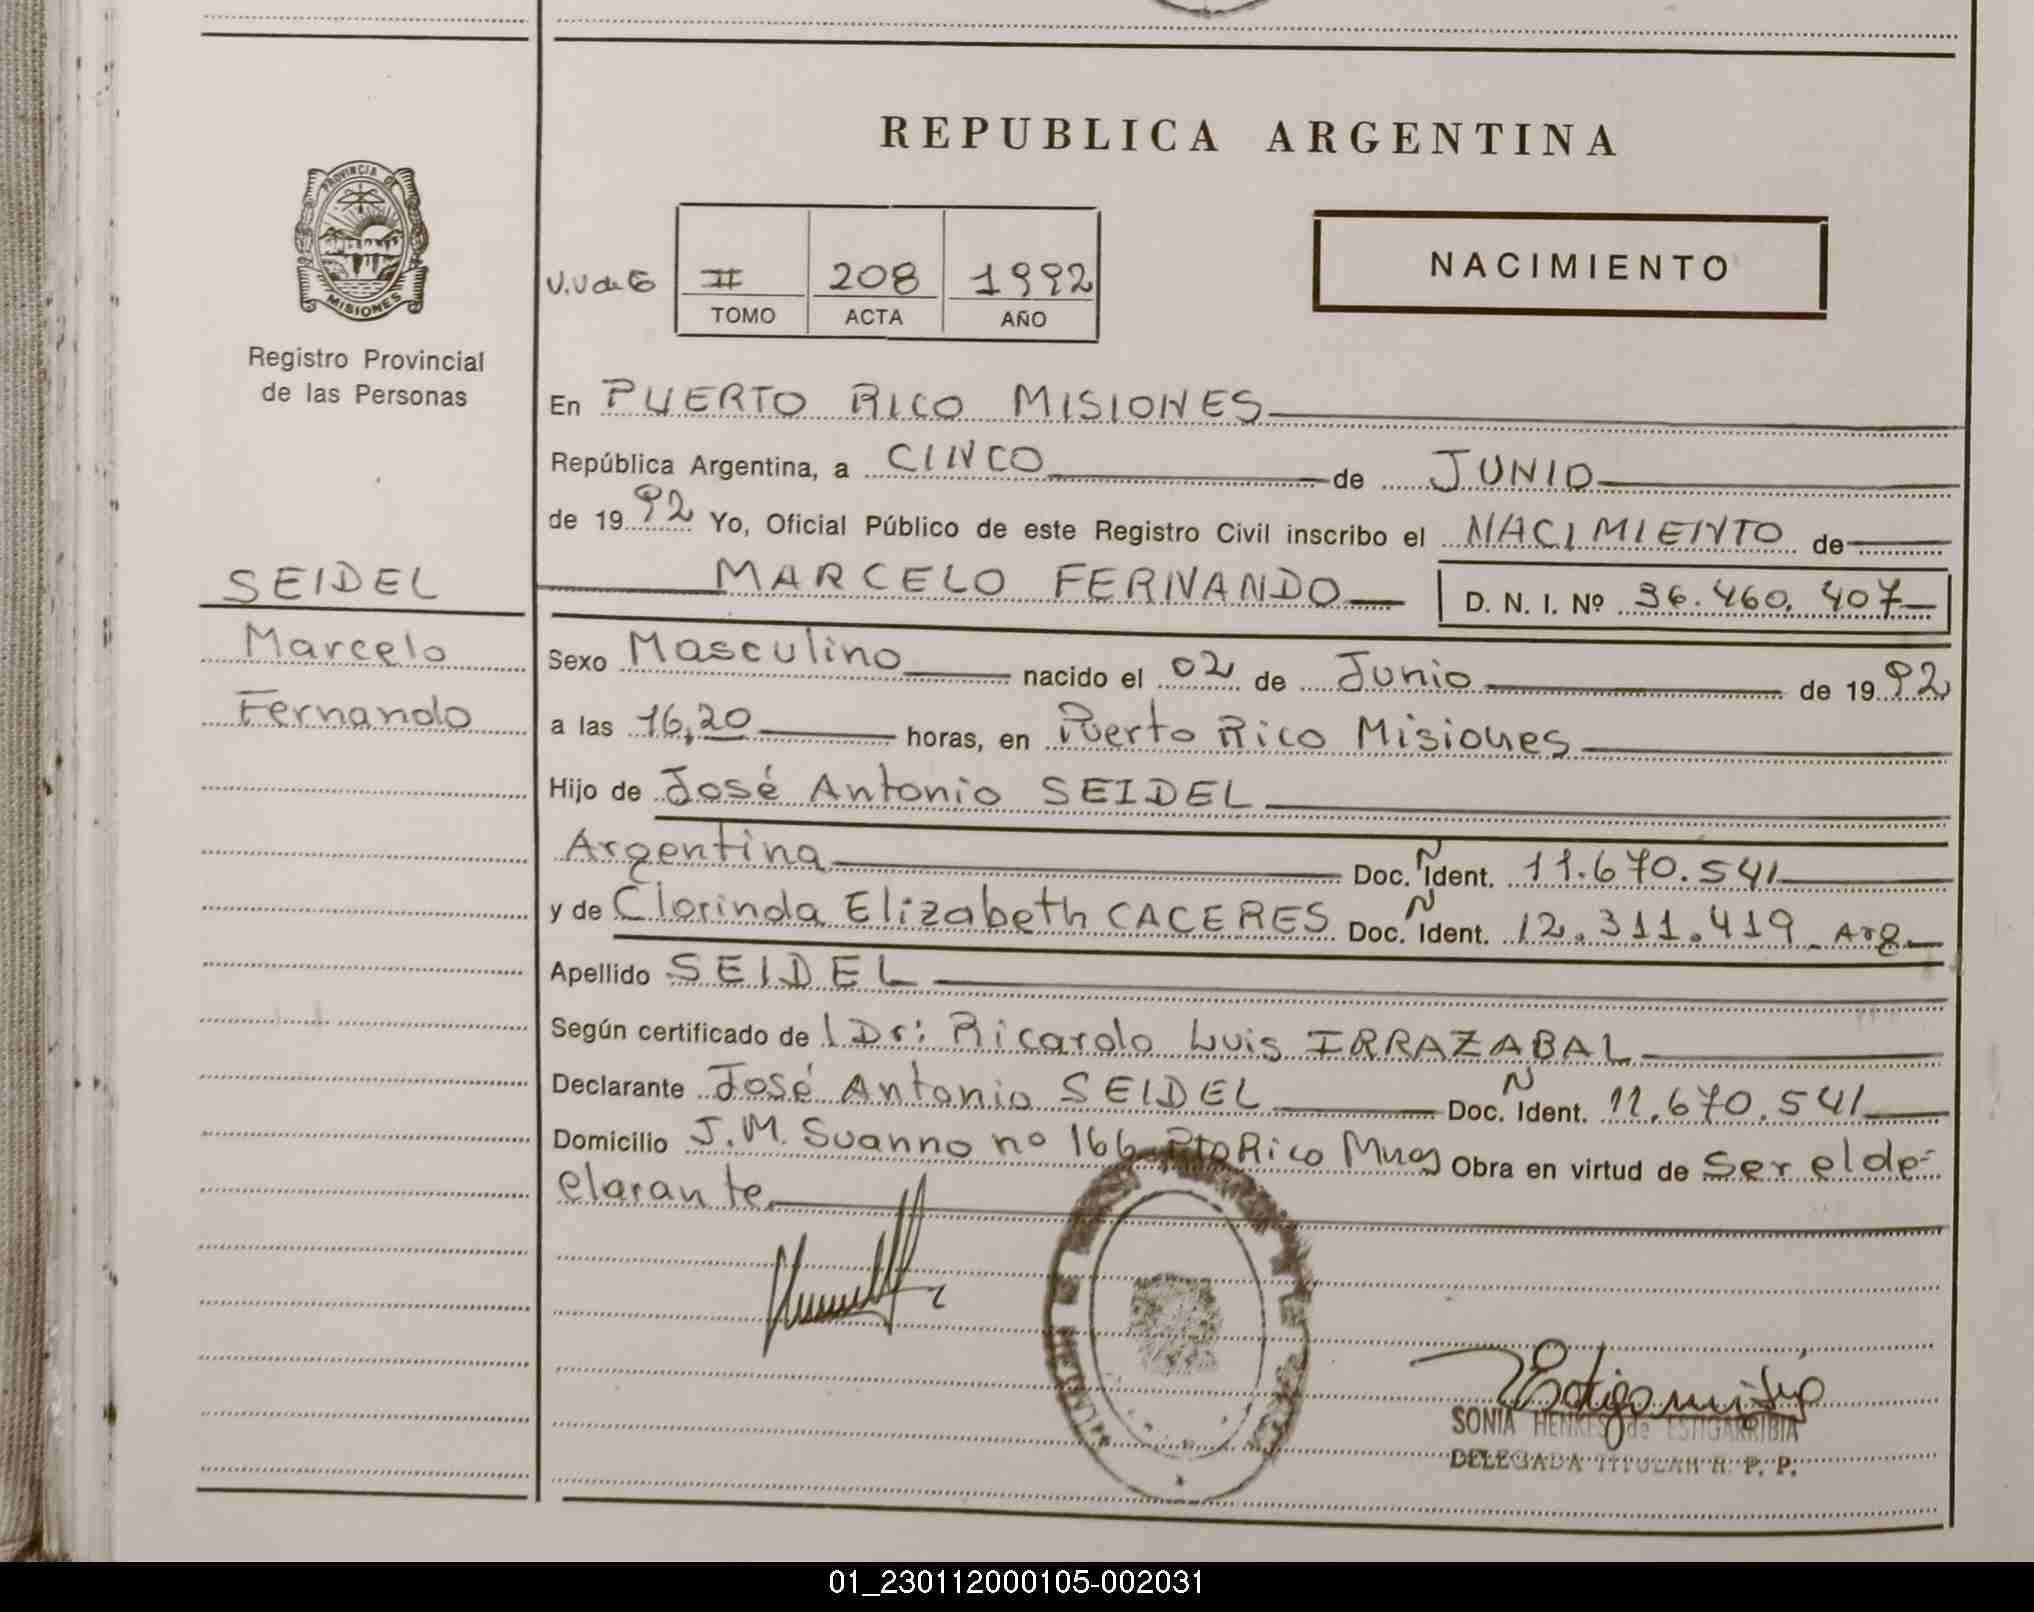 REPUBLICA ARGENTINA
PROVINCIA DE
MISIONES
Registro Provincial
de las Personas
NACIMIENTO
II 208 1992
TOMO ACTA AÑO
En PUERTO RICO MISIONES
República Argentina, a CINCO de JUNIO
de 1992 Yo, Oficial Público de este Registro Civil inscribo el NACIMIENTO de
SEIDEL
MARCELO FERNANDO D. N. I. Nº 36.460.407
Marcelo
Fernando
Sexo Masculino nacido el 02 de Junio de 1992
a las 16,20 horas, en Puerto Rico Misiones
Hijo de José Antonio SEIDEL
Argentina Doc. Ident. 11.670.541
y de Clorinda Elizabeth CACERES Doc. Ident. 12.311.419 Arg
Apellido SEIDEL
Según certificado de l Dr: Ricardo Luis IRRAZABAL
Declarante José Antonio SEIDEL Doc. Ident. 11.670.541
Domicilio J.M. Suanno nº 166 Pto Rico Mnes Obra en virtud de Ser el de=
clarante
SONIA HENKES de ESTIGARRIBIA
DELEGADA TITULAR R. P. P.
01_230112000105-002031